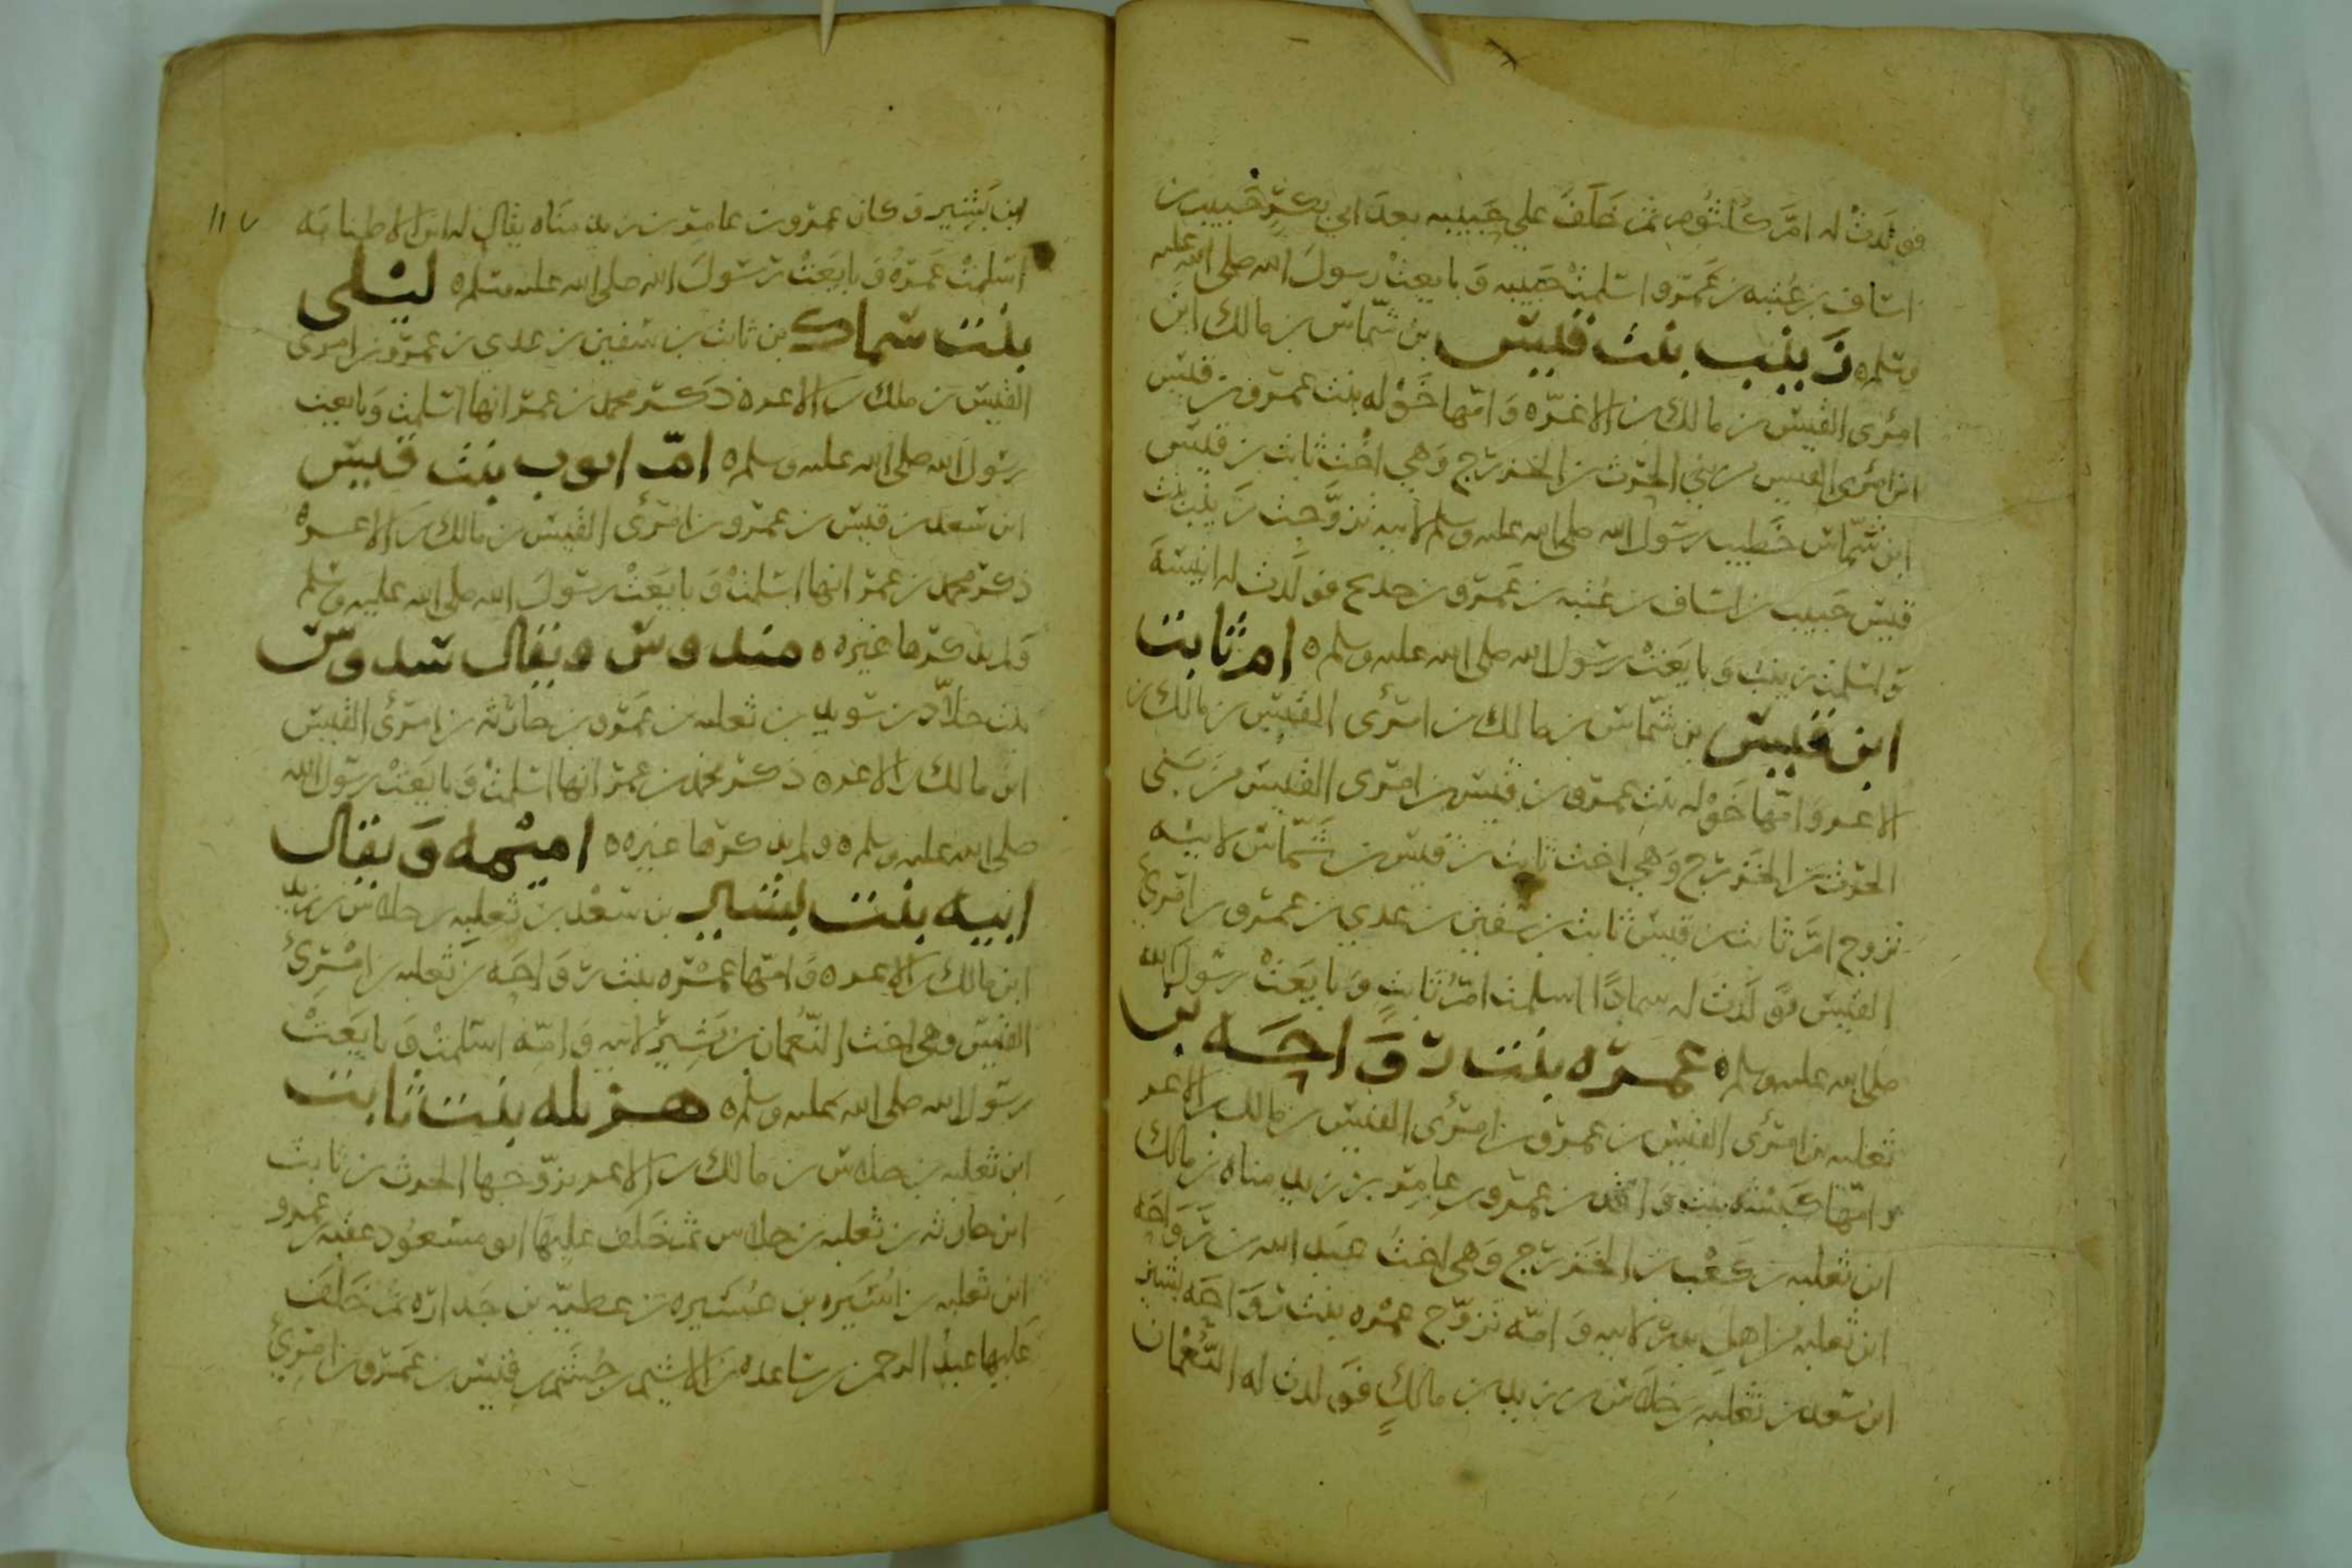 فولدت له ام كلثوم ثم خلف على حبيبه بعد ابي بكر خبيب بن
اساف بن عتبه بن عمرو اسلمت حبيبه وبايعت رسول الله صلى الله عليه
وسلم ه زينب بنت قيس بن شماس بن مالك ابن
امرئ القيس بن مالك بن الاغر ه وامها خوله بنت عمرو بن قيس
ابن امرئ القيس من بني الحرث بن الخزرج وهي اخت ثابت بن قيس
ابن شماس خطيب رسول الله صلى الله عليه وسلم لابيه تزوجت زينب بنت
قيس خبيب بن اساف بن عتبه بن عمرو بن خديج فولدت له انيسة
واسلمت زينب وبايعت رسول الله صلى الله عليه وسلم ه ام ثابت
ابن قيس بن شماس بن مالك بن امرئ القيس بن مالك بن
الاغر وامها خوله بنت عمرو بن قيس بن امرئ القيس من بني
الحرث بن الخزرج وهي اخت ثابت بن قيس بن شماس لابيه
تزوج ام ثابت بن قيس ثابت بن سفين بن عدي بن عمرو بن امرئ
القيس فولدت له سماكا اسلمت ام ثابت وبايعت رسول الله
صلى الله عليه وسلم ه عمره بنت رواحه بن
ثعلبه بن امرئ القيس بن عمرو بن امرئ القيس بن مالك بن الاغر
وامها كبشه بنت واقد بن عمرو بن عامر بن زيد مناه بن مالك
ابن ثعلبه بن كعب بن الخزرج وهي اخت عبد الله بن رواحه
ابن ثعلبه من اهل بدر لابيه وامه تزوج عمره بنت رواحه بشير
ابن سعد بن ثعلبه بن خلاس بن زيد بن مالك فولدت له النعمان
١١٧
ابن بشير وكان عمرو بن عامر بن زيد مناه يقال له ابن الاطنابه
اسلمت عمره وبايعت رسول الله صلى الله عليه وسلم ه ليلى
بنت سماك بن ثابت بن سفين بن عدي بن عمرو بن امرئ
القيس بن ملك بن الاغر ه ذكر محمد بن عمر انها اسلمت وبايعت
رسول الله صلى الله عليه وسلم ه ام ايوب بنت قيس
ابن سعد بن قيس بن عمرو بن امرئ القيس بن مالك بن الاغر ه
ذكر محمد بن عمر انها اسلمت وبايعت رسول الله صلى الله عليه وسلم
ولم يذكرها غيره ه مندوس ويقال سدوس
بنت خلاد بن سويد بن ثعلبه بن عمرو بن حارثه بن امرئ القيس
ابن مالك بن الاغر ه ذكر محمد بن عمر انها اسلمت وبايعت رسول الله
صلى الله عليه وسلم ه ولم يذكرها غيره ه اميمه ويقال
ابيه بنت بشير بن سعد بن ثعلبه بن خلاس بن زيد
ابن مالك بن الاغر ه وامها عمره بنت رواحه بن ثعلبه بن امرئ
القيس وهي اخت النعمان بن بشير لابيه وامه اسلمت وبايعت
رسول الله صلى الله عليه وسلم ه هزيله بنت ثابت
ابن ثعلبه بن خلاس بن مالك بن الاغر تزوجها الحرث بن ثابت
ابن حارثه بن ثعلبه بن خلاس ثم خلف عليها ابو مسعود عقبه بن عمرو
ابن ثعلبه بن اسيره بن عسيره بن عطيه بن جداره ثم خلف
عليها عبد الرحمن بن ساعده بن الاشيم بن جشم بن قيس بن عمرو بن امرئ